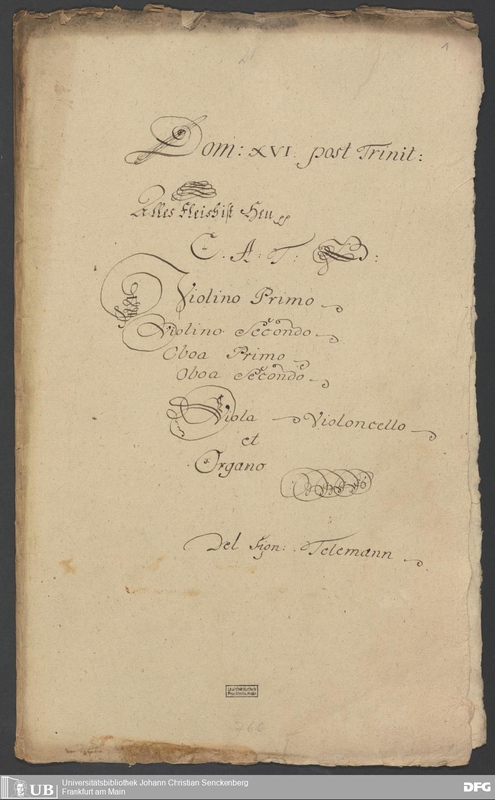 1
Dom: XVI. post Trinit:
Alles Fleisch ist Heu
C. A. T. B:
Violino Primo
Violino Secondo
Oboa Primo
Oboa Secondo
Viola Violoncello
et
Organo
Del Sgn: Telemann
766
UB Universitätsbibliothek Johann Christian Senckenberg
Frankfurt am Main
DFG